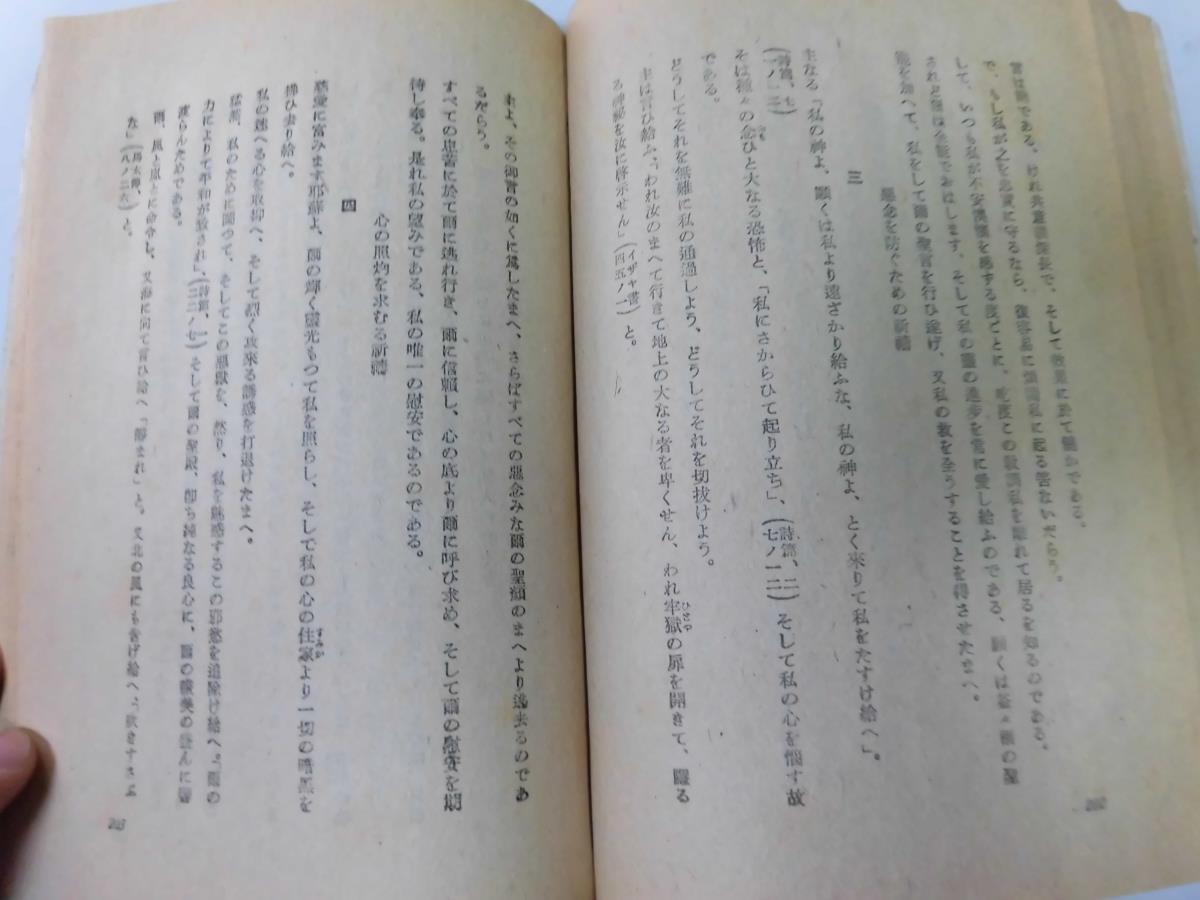 言は略である、けれ共意義深長で、そして効果に於て豊かである。
で、もし私が之を忠實に守るなら、復容易に煩悶私に起る筈ないだらう。
して、いつも私が不安煩懣を感する度ごとに、乾度この教訓私を離れて居るを知るのである。
されど爾は全能でおはします、そして私の靈の進歩を常に愛し給ふのである、願くは益々爾の聖
寵を加へて、私をして爾の聖言を行ひ遂げ、又私の救を全うすることを得させたまへ。
惡念を防ぐための祈禱
三
主なる「私の神よ、願くは私より遠ざかり給ふな、私の神よ、とく来りて私をたすけ給へ」。
(詩篇、七〇ノ一二)
そは種々の念ひと大なる恐怖と、「私にさからひて起り立ち」、(詩篇、二七ノ一二) そして私の心を惱す故
である。
どうしてそれを無難に私の通過しよう、どうしてそれを切抜けよう。
主は言ひ給ふ、「われ汝のまへて行きて地上の大なる者を卑くせん、われ牢獄の扉を開きて、隱る
る神祕を汝に啓示せん」(イザヤ書四五ノ一) と。
202
主よ、その御言の如くに爲したまへ、さらばすべての惡念みな爾の聖顔のまへより逃去るのであ
るだらう。
すべての患害に於て爾に逃れ行き、爾に信頼し、心の底より爾に呼び求め、そして爾の慰安を期
待し奉る。是れ私の望みである、私の唯一の慰安であるのである。
四
心の照灼を求むる祈禱
慈愛に富みます耶蘇よ、爾の輝く靈光もつて私を照らし、そして私の心の住家より一切の暗黑を
掃ひ去り給へ。
私の迷へる心を取抑へ、そして烈く攻來る誘惑を打退けたまへ。
猛烈、私のために闘つて、そしてこの惡獣を、然り、私を魅惑するこの邪慾を追除け給へ。「爾の
力によりて平和が致され」、(詩篇、一二二ノ七) そして爾の聖殿、卽ち純なる良心に、爾の讃美の盛んに響
渡らんためである。
爾、風と嵐とに命令し、又海に向て言ひ給へ「靜まれ」と。又北の風にも告げ給へ、「吹きすさぶ
な」(馬太傳、八ノ二六) と。
203